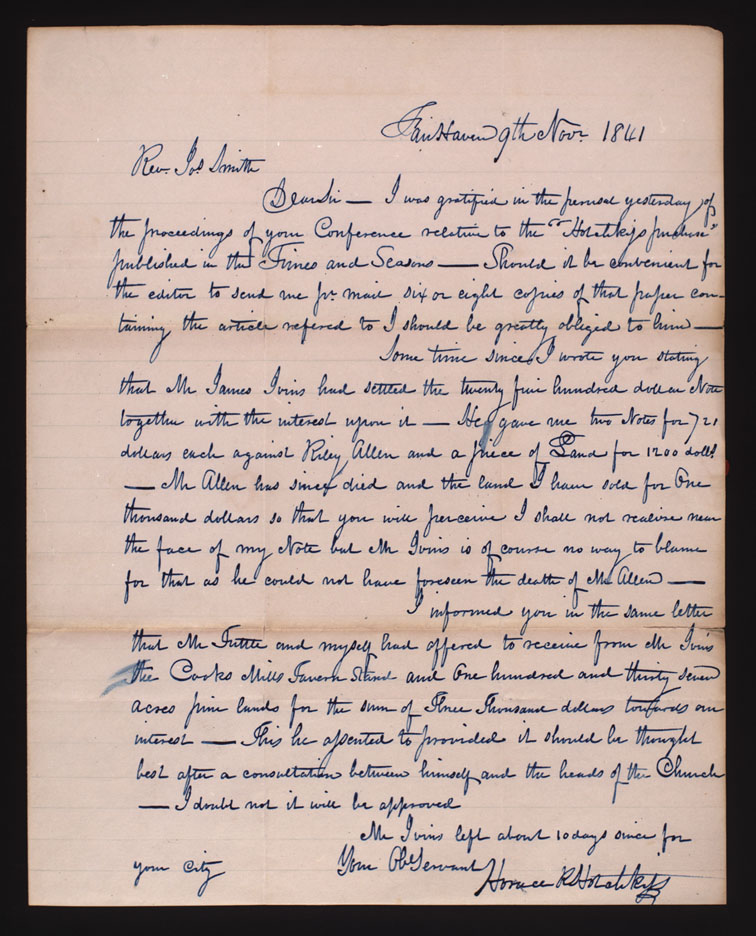 Fair Haven 9th Novr. 1841
Rev. Jos Smith
Dear Sir — I was gratified in the perusal yesterday of
the proceedings of your Conference relative to the "Hotchkiss purchase"
published in the Times and Seasons — Should it be convenient for
the editor to send me pr. mail six or eight copies of that paper con-
taining the article refered to I should be greatly obliged to him —
Some time since I wrote you stating
that Mr James Ivins had settled the twenty five hundred dollar Note
together with the interest upon it — He gave me two Notes for 721
dollars each against Riley Allen and a piece of Land for 1200 dolls.
— Mr Allen has since died and the land I have sold for One
thousand dollars so that you will perceive I shall not realise near
the face of my Note but Mr Ivins is of course no way to blame
for that as he could not have foreseen the death of Mr Allen —
I informed you in the same letter
that Mr Tuttle and myself had offered to receive from Mr Ivins
the Cooks Mills Tavern Stand and One hundred and thirty seven
acres pine lands for the sum of Three Thousand dollars towards our
interest — This he assented to provided it should be thought
best after a consultation between himself and the heads of the Church
— I doubt not it will be approved
Mr Ivins left about 10 days since for
your City
Your Obt Servant
Horace R Hotchkiss